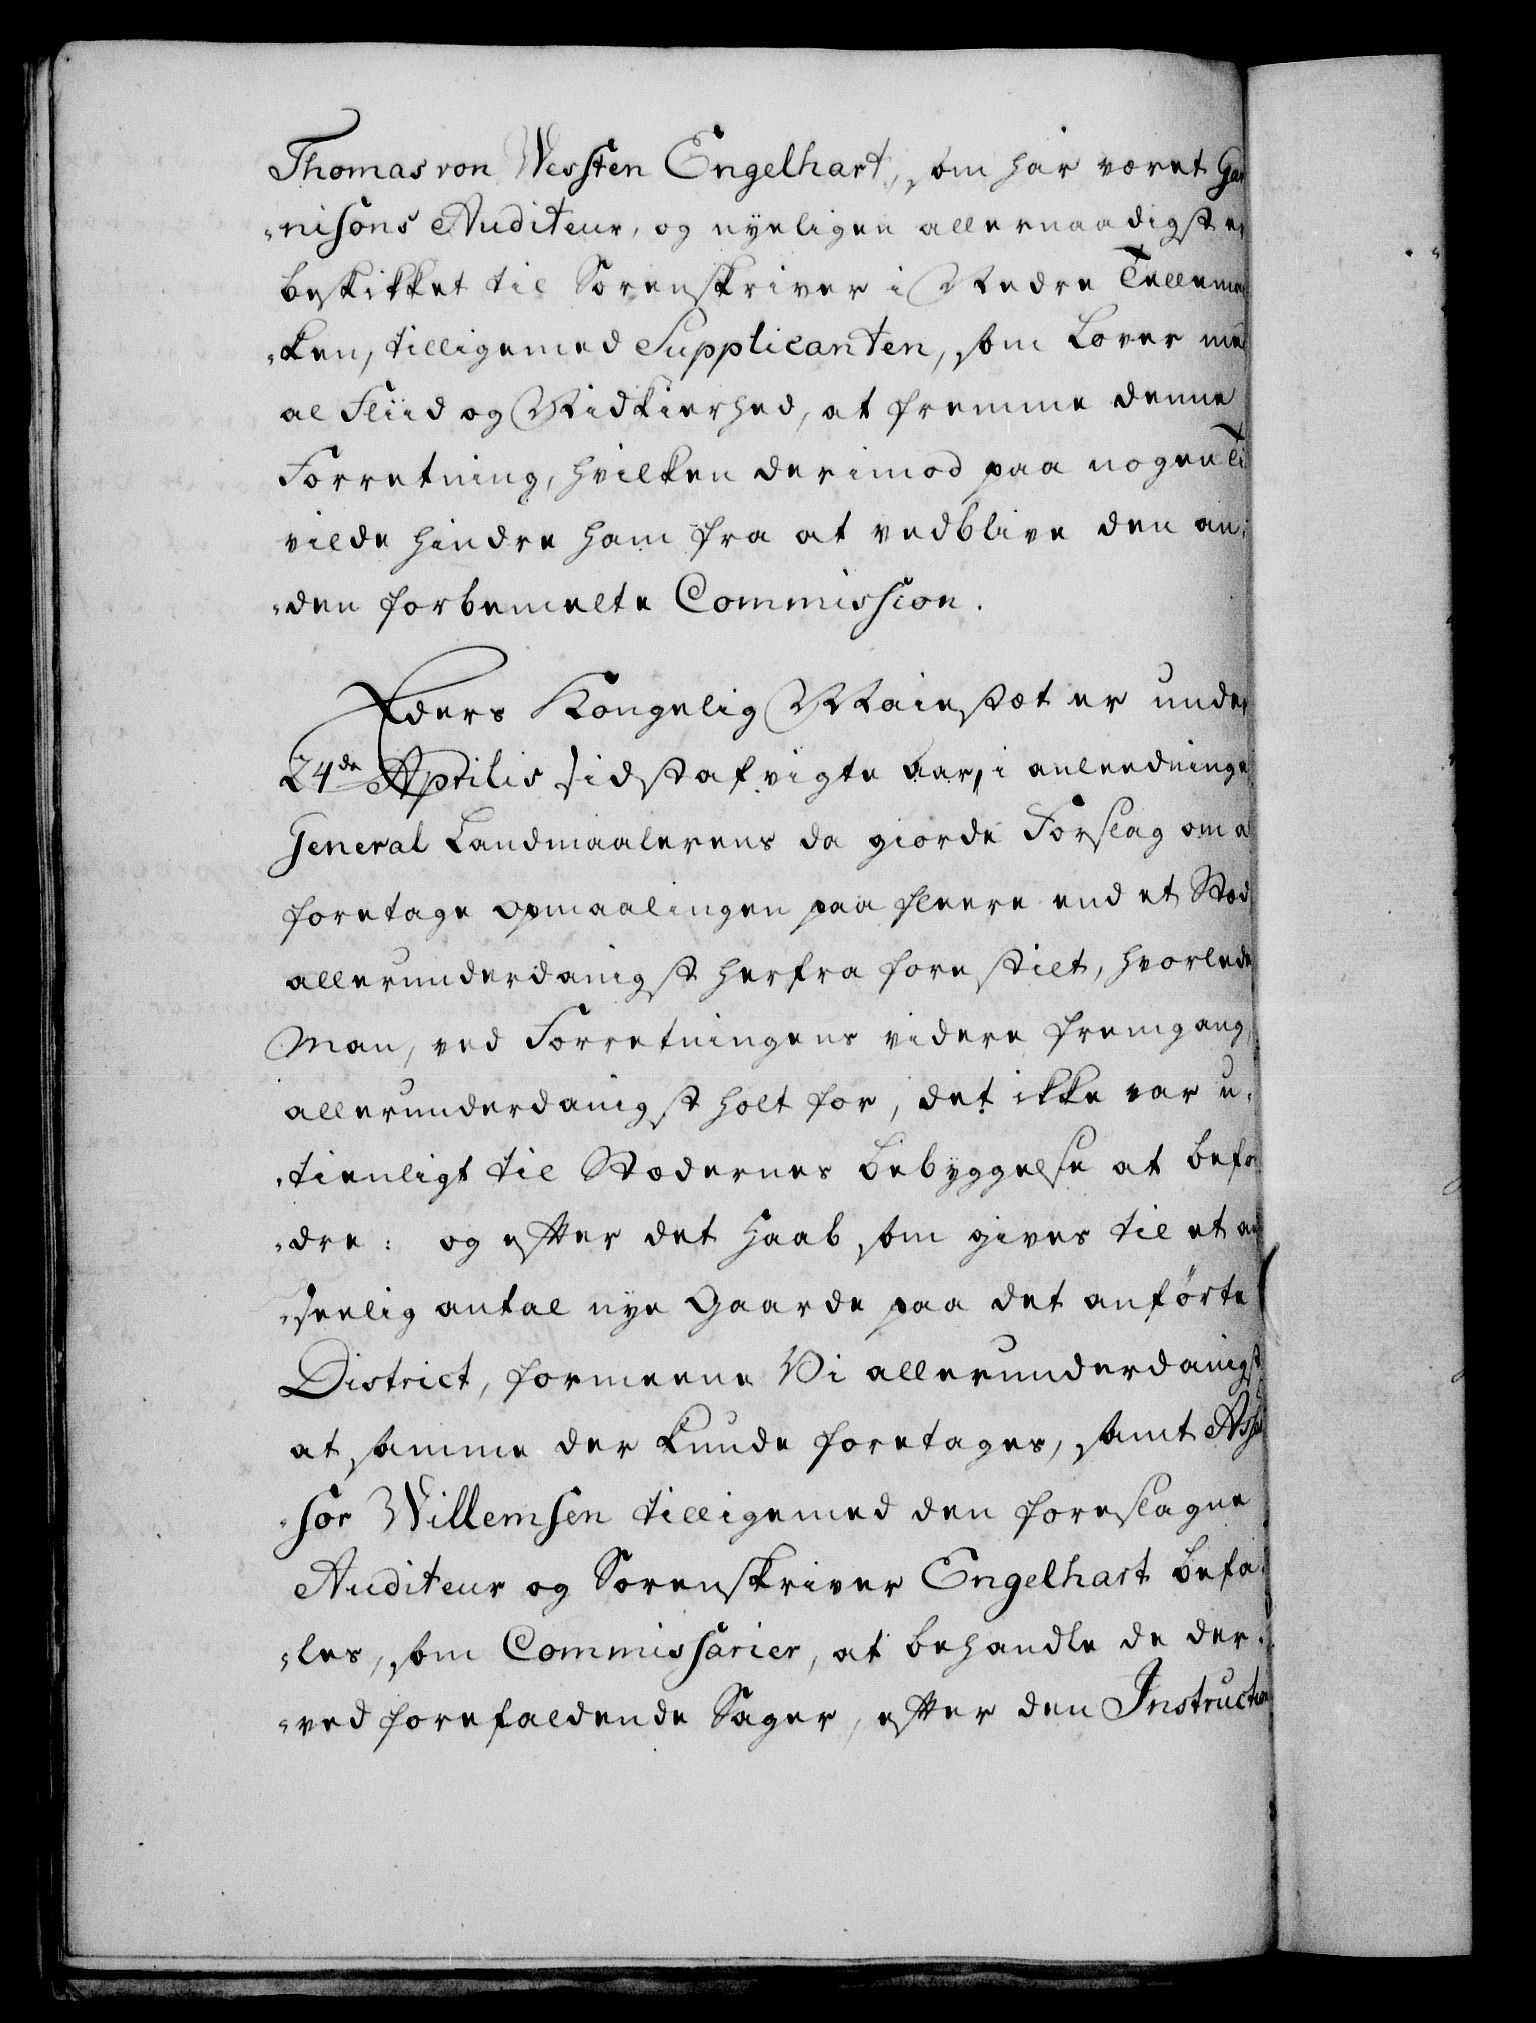 Thomas von Wessten Engelhart, som har været Gar
-nisons Auditeur, og nyeligen allernaadigst er
beskikket til Sorenskriver i Nedre Tellemar
-ken, tilligemed Supplicanten, som lover med
al Fliid og Nidkierhed, at fremme denne
Forretning, hvilken derimod paa nogen Ti
vilde hindre ham fra at vedblive den an-
-den forbemelte Commission.
Eders Kongelig Maiestæt er under
24de Aprilis sidstafvigte Aar, i anleedning
General Landmaalerens da giorde Forslag om a
foretage opmaalingen paa fleere end et Stæd
allerunderdanigst herfra forestilt, hvorlede
Man, ved Forretningens videre fremgang,
allerunderdanigst holt for, det ikke var u-
-tienligt til Stædernes bebyggelse at befor
-dre: og efter det Haab som gives til et an
-seelig antal nye Gaarde paa det anførte
District, formeene Vi allerunderdanigst
at samme der kunde foretages, samt Asse
-sor Willemsen tilligemed den foreslagne
Auditeur og Sorenskriver Engelhart befa-
-les, som Commissarier, at behandle de der-
-ved forefaldende Sager, efter den Instruction